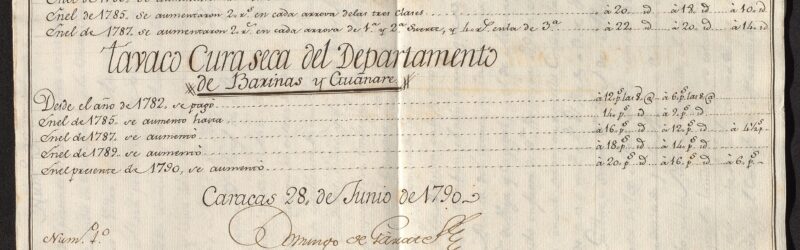 Enel de 1785. se aumentaron 2. rs. en cada arrova de las tres Clases à 20. id à 18. id à 10. id
Enel de 1787. se aumentaron 2. rs. en cada arrova de 1ª y 2ª Suerte, y 4. rs. enla de 3ª à 22. id à 20. id à 14. id
Tavaco Cura seca del Departamento
de Barinas y Guanare.
Desde el año de 1782. se pagó à 12. ps. las 8. @ à 6. ps. las 8. @
Enel de 1785. se aumentó hasta 14. ps. id à 9. ps. id
Enel de 1787. se aumentó à 16. ps. id à 12. ps. id à 4½ ps.
Enel de 1789. se aumentó à 18. ps. id à 14. ps. id
Enel presente de 1790, se aumentó à 20. ps. id à 16. ps. id à 6. ps.
Caracas 28, de Junio de 1790
Domingo de Gárate
Num.º 1.º